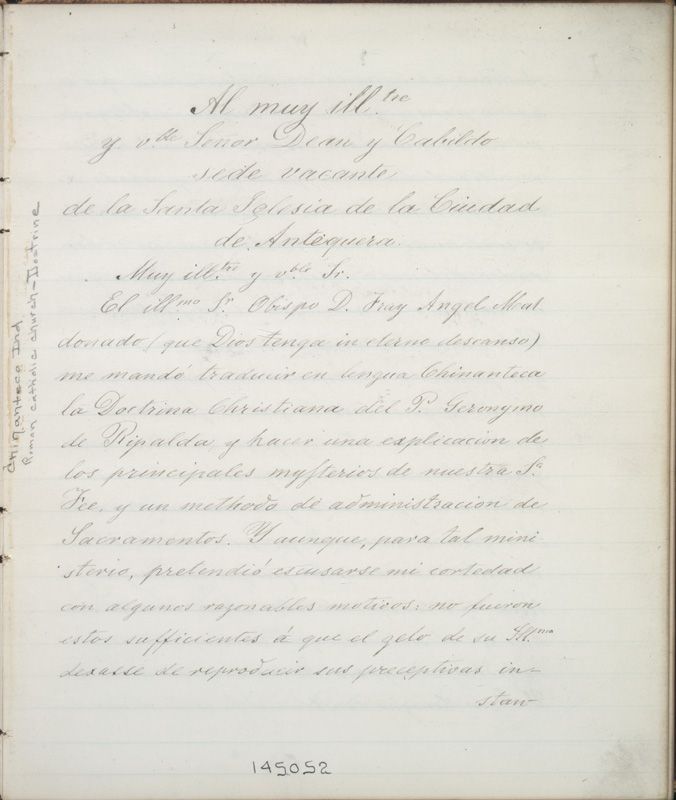 Al muy ill.tre
y v.ble Señor Dean y Cabildo
sede vacante
de la Santa Iglesia de la Ciudad
de Antequera.
Muy ill.tre y v.ble Sr.
El ill.mo Sr. Obispo D. Fray Angel Mal
donado (que Dios tenga in eterno descanso)
me mandó traducir en lengua Chinanteca
la Doctrina Christiana del P. Geronymo
de Ripalda, y hacer una explicacion de
los principales mysterios de nuestra S.a
Fee, y un methodo de administracion de
Sacramentos. Y aunque, para tal mini
sterio, pretendió escusarse mi cortedad
con algunos razonables motivos: no fueron
estos sufficientes á que el zelo de su Ill.ma
dexasse de reproducir sus preceptivas in-
stan
Chinanteco Ind
Roman catholic church - Doctrine
145052